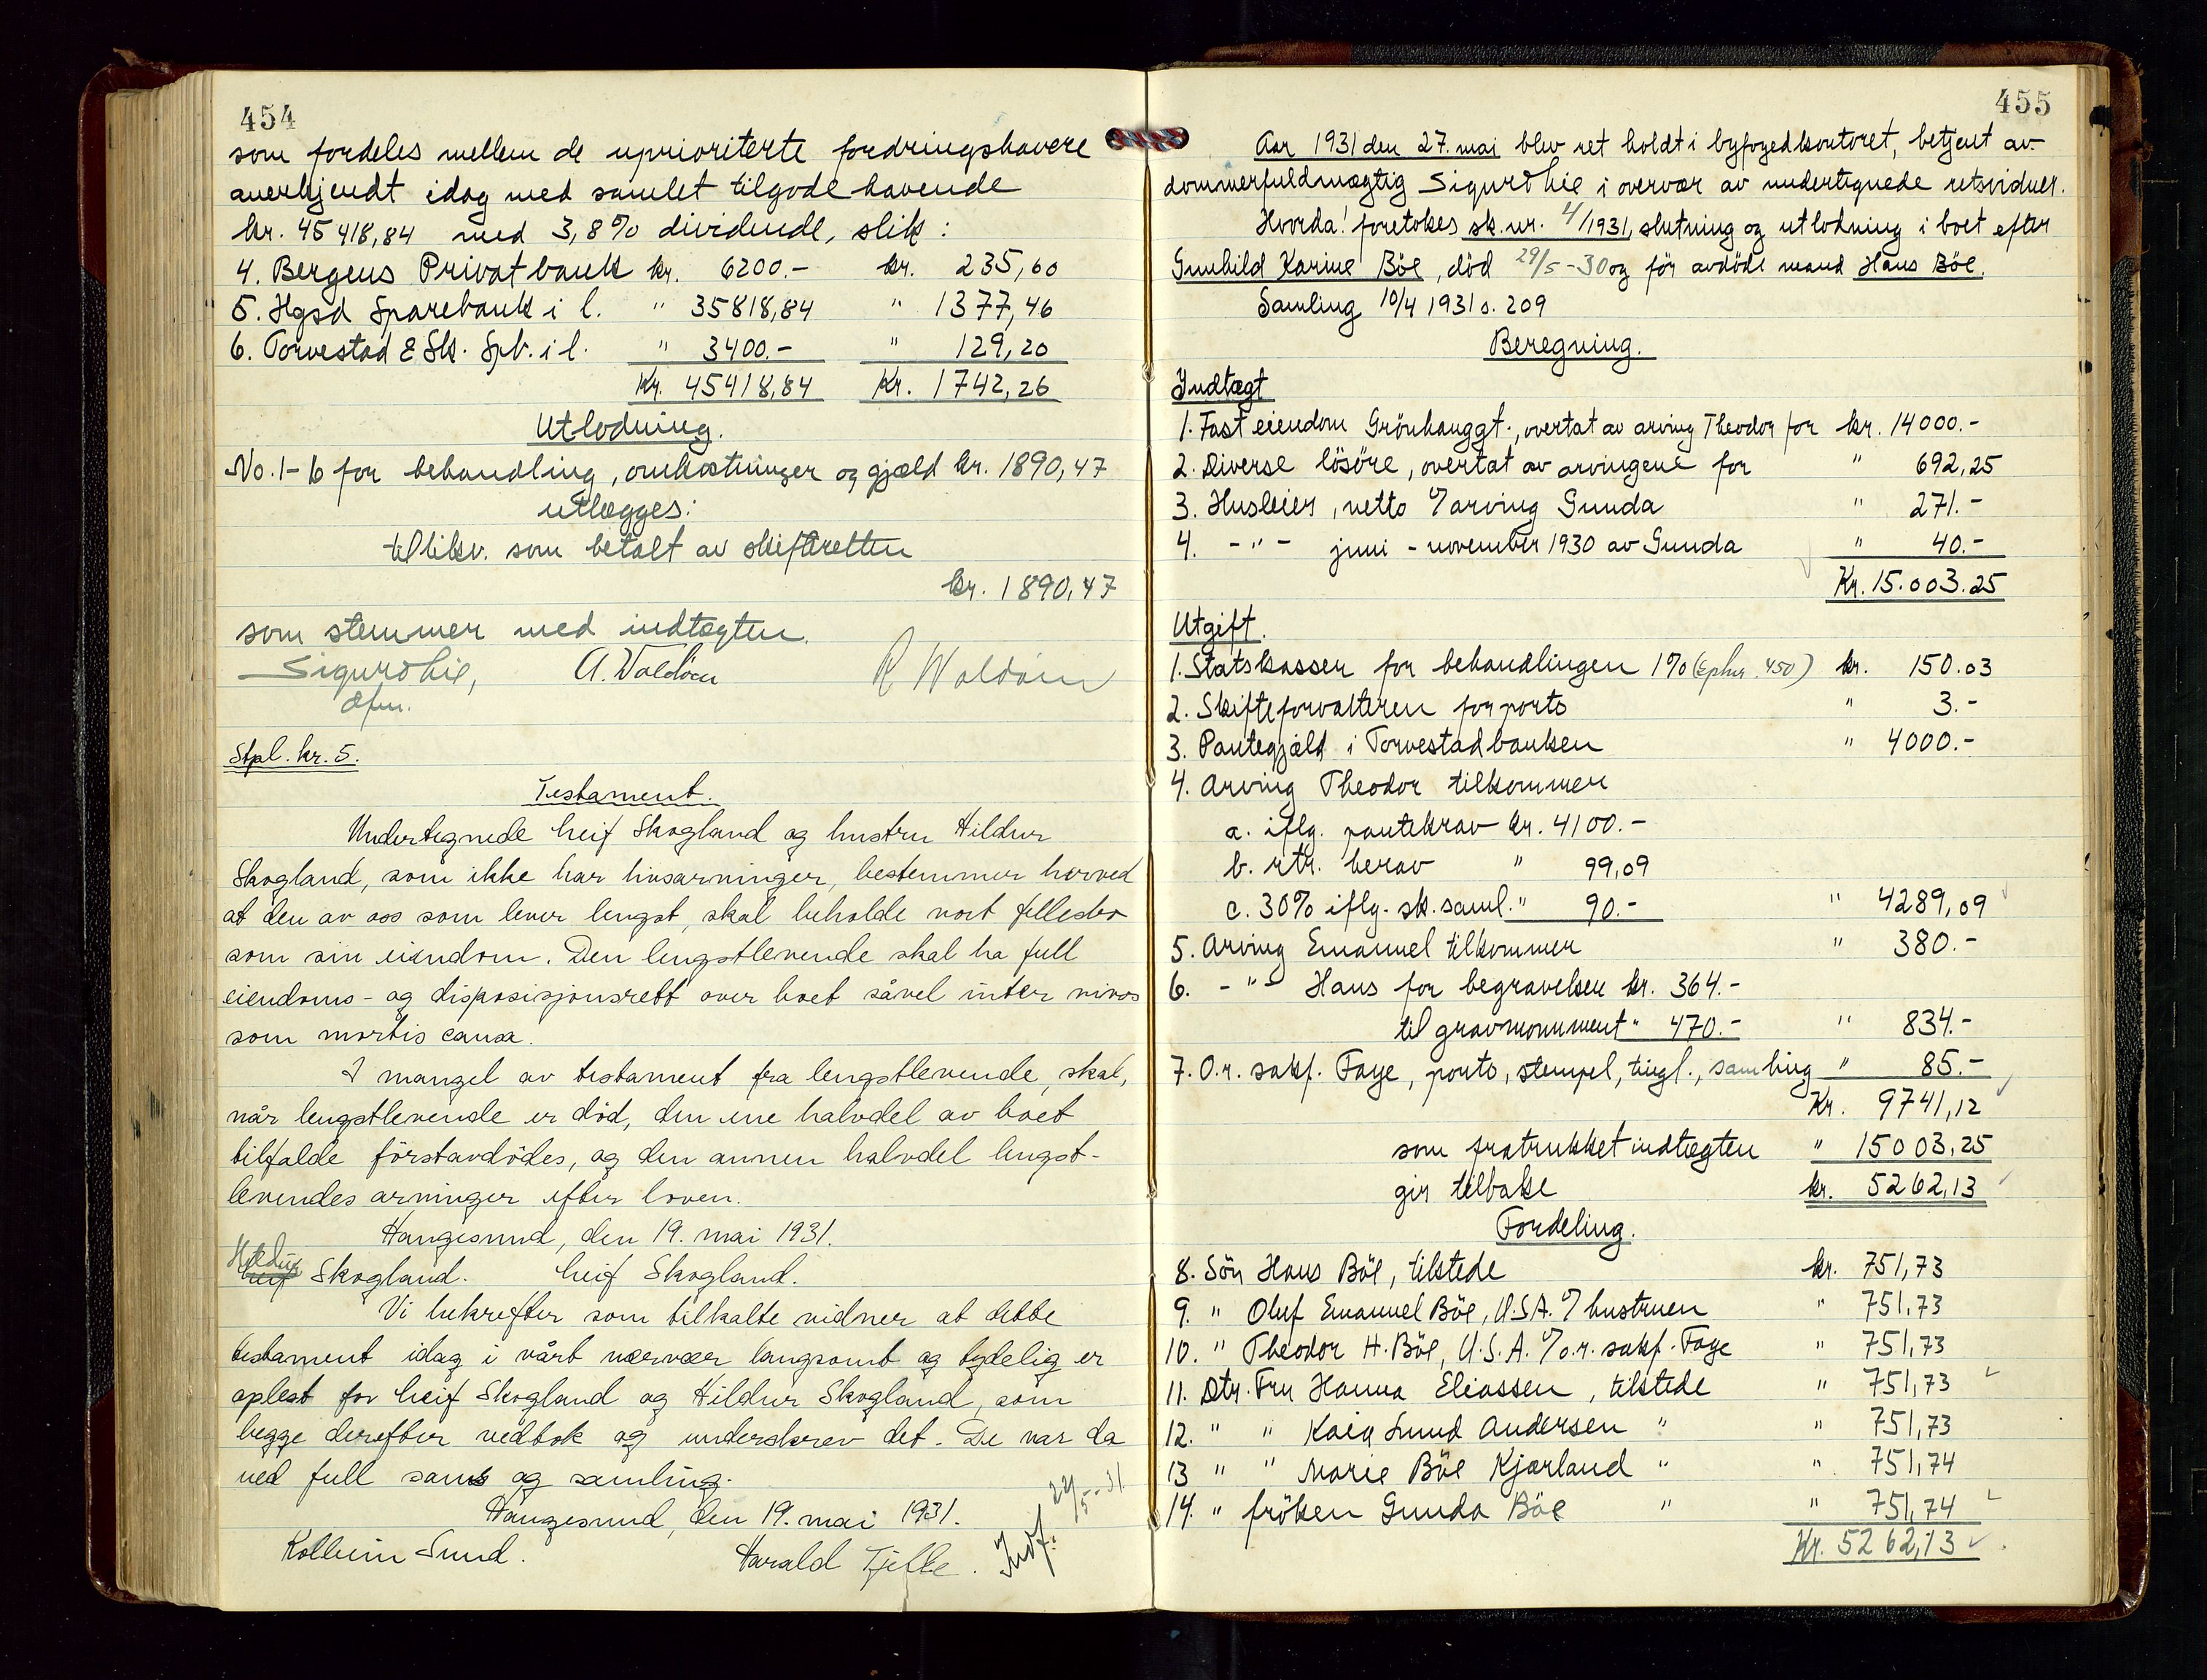 454
som fordeles mellem de uprioriterte fordringshavere
anerkjendt idag med samlet tilgodehavende
kr. 45418,84 med 3,8% dividende, slik:
4. Bergens Privatbank kr. 6200.- kr. 235,60
5. Hgsd Sparebank i l. " 35818,84 " 1377,46
6. Torvestad & Sk. Spb. i l. " 3400.- " 129,20
Kr. 45418,84 Kr. 1742,26
Utlodning.
No. 1-6 for behandling, omkostninger og gjæld kr. 1890,47
utlægges:
til likv. som betalt av skifteretten
kr. 1890,47
som stemmer med indtægten.
Sigurd Lie, A. Valdöm R Waldöm
dfm.
Stpl. kr. 5.
Testament.
Undertegnede Leif Skogland og hustru Hildur
Skogland, som ikke har livsarvinger, bestemmer herved
at den av oss som lever lengst, skal beholde vort fellesbo
som sin eiendom. Den lengstlevende skal ha full
eiendoms- og disposisjonsrett over boet såvel inter vivos
som mortis causa.
I mangel av testament fra lengstlevende, skal,
når lengstlevende er död, den ene halvdel av boet
tilfalde förstavdödes, og den annen halvdel lengst-
levendes arvinger efter loven.
Haugesund, den 19. mai 1931.
Hildur
Leif Skogland. Leif Skogland.
Vi bekrefter som tilkalte vidner at dette
testament idag i vårt nærvær langsomt og tydelig er
oplest for Leif Skogland og Hildur Skogland, som
begge derefter vedtok og underskrev det. De var da
ved full sans og samling.
Haugesund, den 19. mai 1931.
Kolbein Sund. Harald Tjelle. Indf. 29/5-31
455
Aar 1931 den 27. mai blev ret holdt i byfogedkontoret, betjent av
dommerfuldmægtig Sigurd Lie i overvær av undertegnede retsvidner.
Hvorda! foretokes sk. nr. 4/1931, slutning og utlodning i boet efter
Gunhild Karine Böe, död 29/5-30 og för avdöde mand Hans Böe.
Samling 10/4 1931 s. 209
Beregning.
Indtægt
1. Fast eiendom Grönhauggt., overtat av arving Theodor for kr. 14000.-
2. Diverse lösöre, overtat av arvingene for " 692,25
3. Husleier, netto v/ arving Gunda " 271.-
4. -"- juni - november 1930 av Gunda " 40.-
Kr. 15.003.25
Utgift.
1. Statskassen for behandlingen 1% (Ephnr. 450) kr. 150.03
2. Skifteforvalteren for porto " 3.-
3. Pantegjæld i Torvestadbanken " 4000.-
4. Arving Theodor tilkommer
a. iflg. pantekrav kr. 4100.-
b. rtr. herav " 99,09
c. 30% iflg. sk. saml. " 90.- " 4289,09
5. Arving Emanuel tilkommer " 380.-
6. -"- Hans for begravelsen kr. 364.-
til gravmonument " 470.- " 834.-
7. O.r. sakf. Faye, porto, stempel, tingl., samling " 85.-
Kr. 9741,12
som fratrukket indtægten " 15003,25
gir tilbake kr. 5262,13
Fordeling.
8. Sön Hans Böe, tilstede kr. 751,73
9. " Oluf Emanuel Böe, U.S.A. v/ hustruen " 751,73
10. " Theodor H. Böe, U.S.A. v/o.r. sakf. Faye " 751,73
11. Dtr. Fru Hanna Eliassen, tilstede " 751,73
12. " " Kaia Lund Andersen " " 751,73
13 " " Marie Böe Kjærland " " 751,74
14. " fröken Gunda Böe " " 751,74
Kr. 5262,13